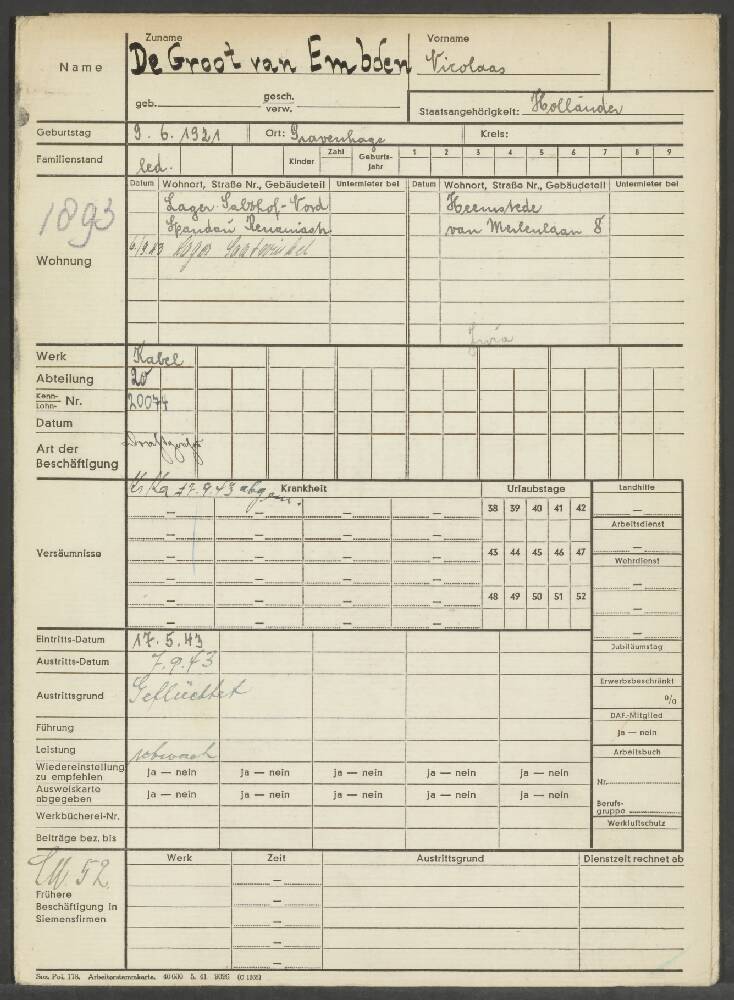 Name
Zuname
De Groot van Embden
Vorname
Nicolaas
geb.
gesch.
verw.
Staatsangehörigkeit: Holländer
Geburtstag 9. 6. 1921 Ort: Gravenhage Kreis:
Familienstand led. Kinder Zahl Geburts-Jahr 1 2 3 4 5 6 7 8 9
Datum Wohnort, Straße Nr., Gebäudeteil Untermieter bei Datum Wohnort, Straße Nr., Gebäudeteil Untermieter bei
1893
Lager Salzhof-Nord Heemstede
Spandau van Merlenlaan 8
Lager Saatwinkel
Wohnung
Werk Kabel
Abteilung 20
Kenn-
Lohn- Nr. 20074
Datum
Art der
Beschäftigung
17.9.43 Krankheit Urlaubstage Landhilfe
38 39 40 41 42
Arbeitsdienst
Versäumnisse 43 44 45 46 47
Wehrdienst
48 49 50 51 52
Eintritts-Datum 17. 5. 43
Jubiläumstag
Austritts-Datum 7. 9. 43
Erwerbsbeschränkt
%
Austrittsgrund Geflüchtet
DAF-Mitglied
Führung
ja — nein
Leistung schwach
Arbeitsbuch
Wiedereinstellung
zu empfehlen ja — nein ja — nein ja — nein ja — nein ja — nein
Ausweiskarte
abgegeben ja — nein ja — nein ja — nein ja — nein ja — nein
Nr.
Werkbücherei-Nr.
Berufs-
gruppe
Werkluftschutz
Beiträge bez. bis
Werk Zeit Austrittsgrund Dienstzeit rechnet ab
52.
Frühere
Beschäftigung in
Siemensfirmen
Soz. Pol. 178. Arbeiterstammkarte. 40000 5. 41